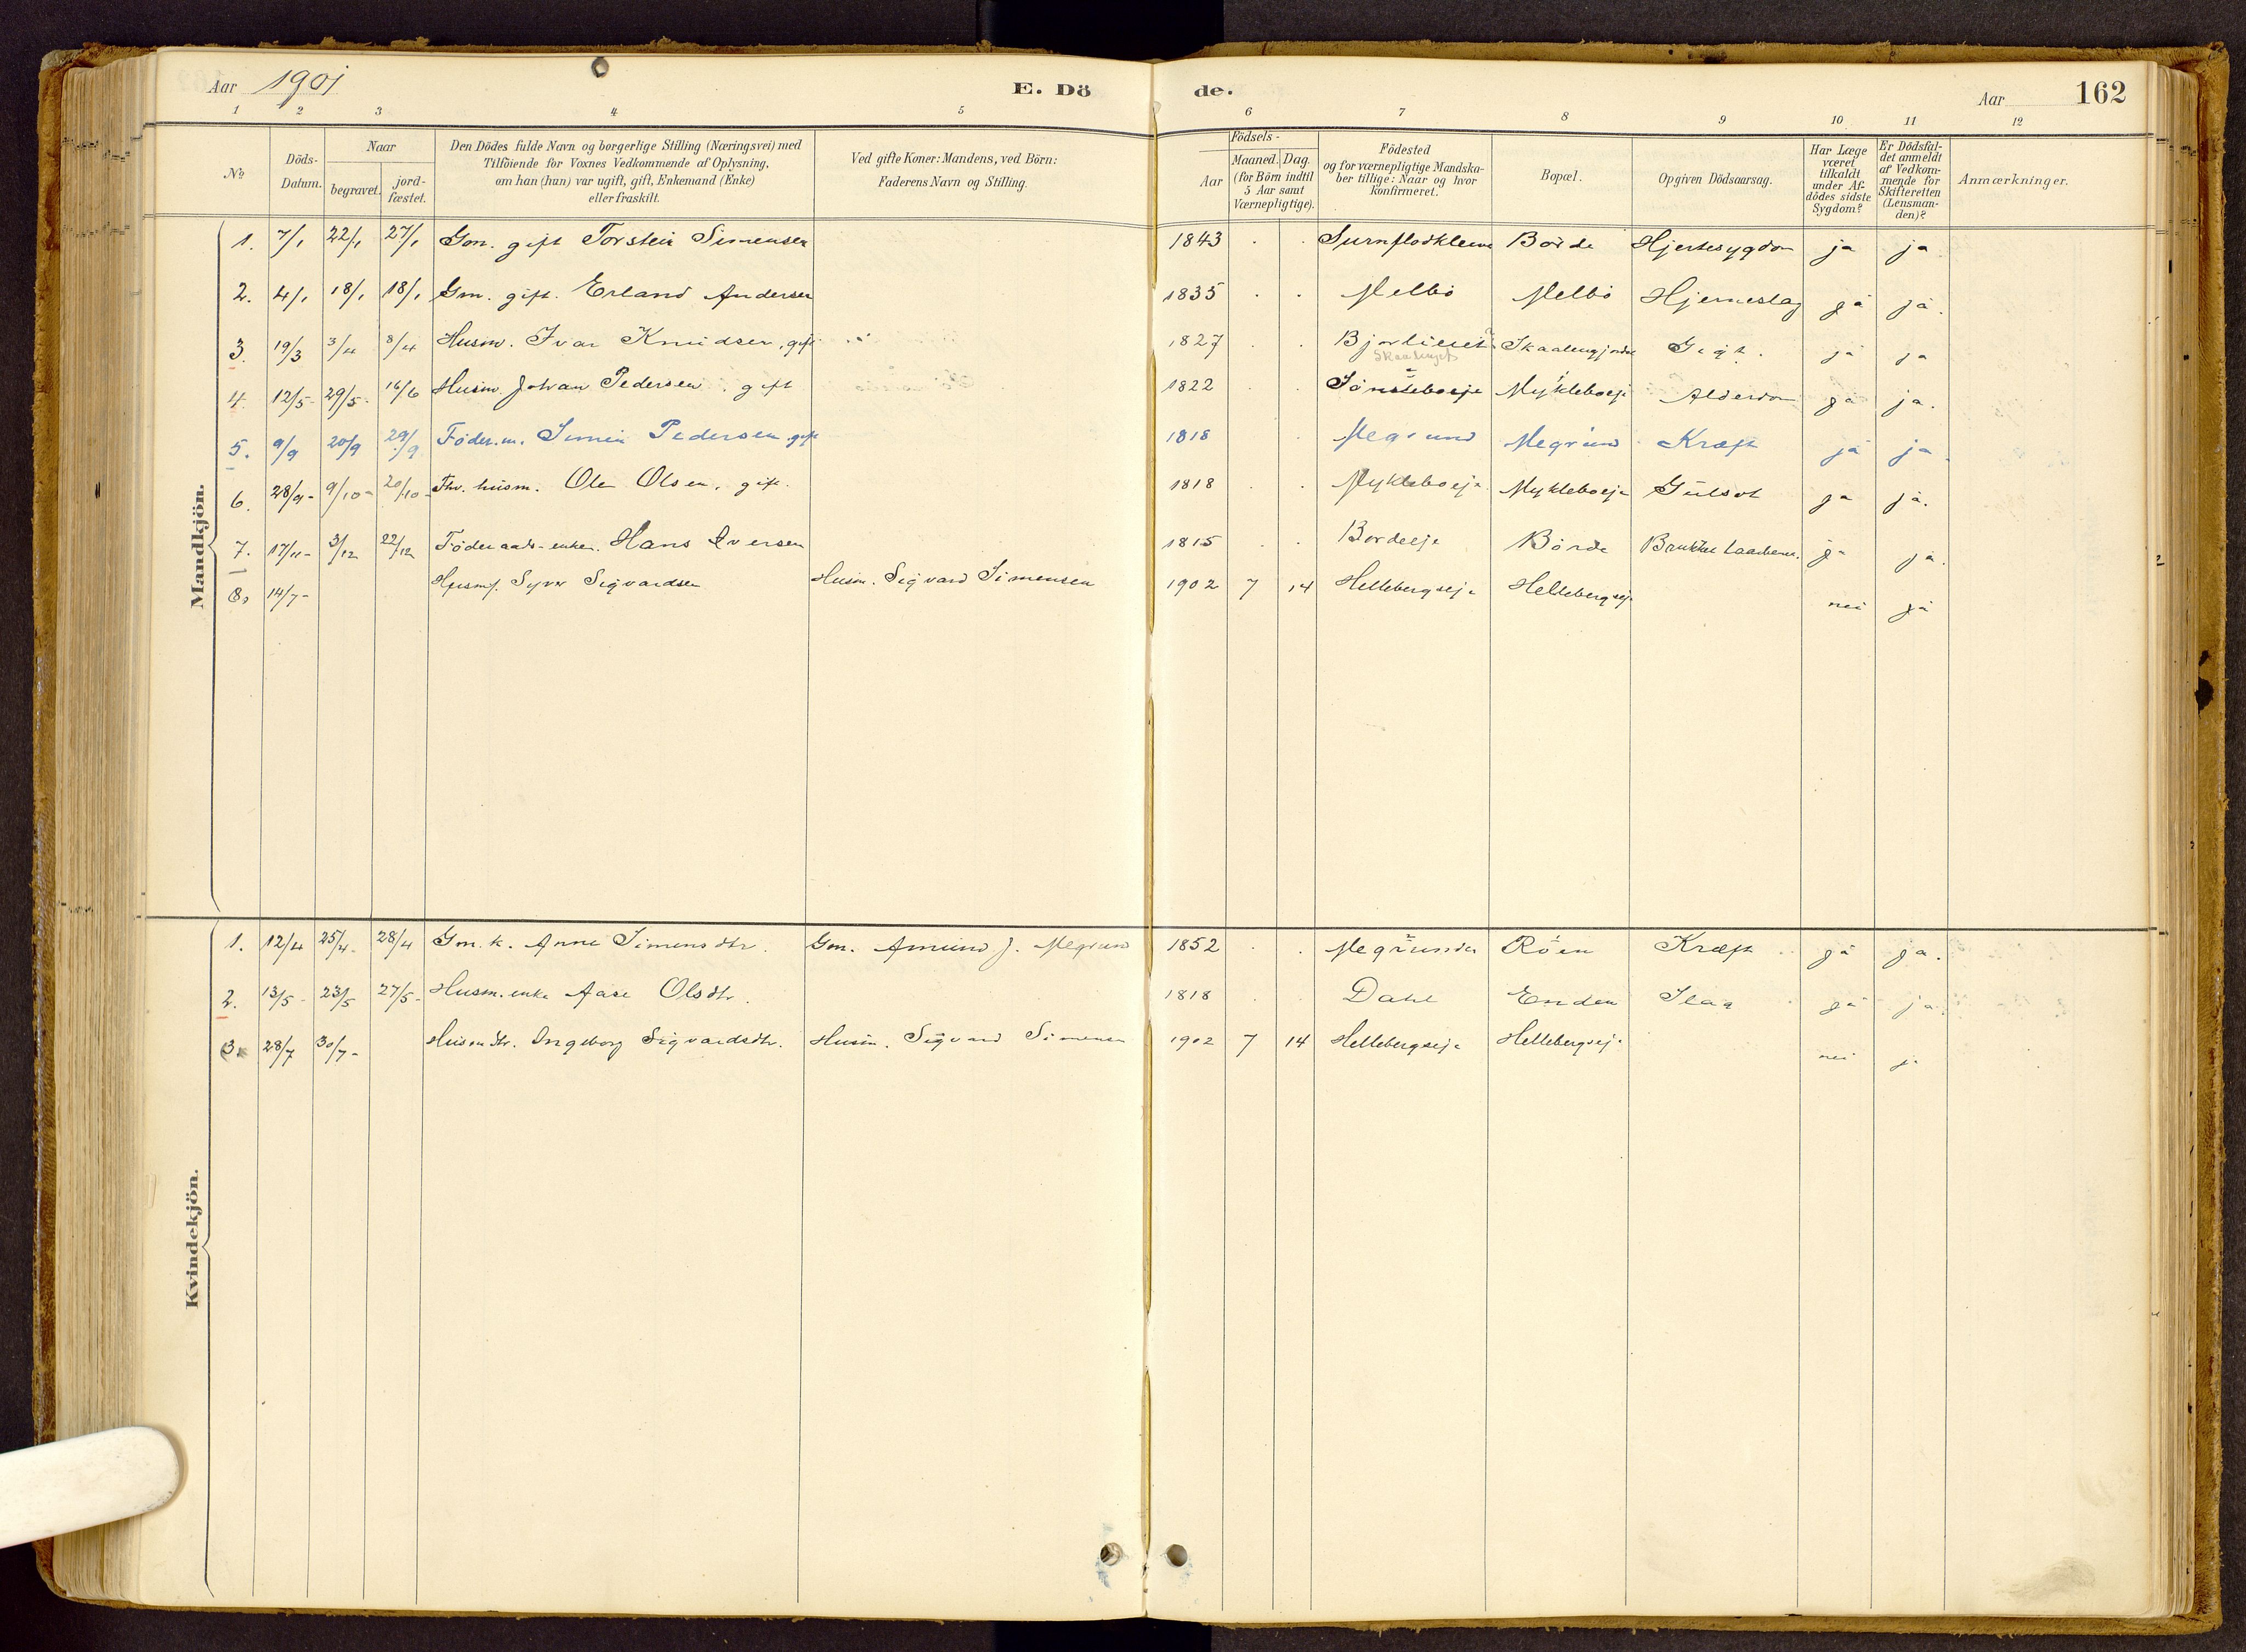 Aar 1901 E. Dö de. Aar 162
1 2 3 4 5 6 7 8 9 10 11 12
No
Döds-Datum.
Naar
begravet.
jord-fæstet.
Den Dödes fulde Navn og borgerlige Stilling (Næringsvei) med
Tilföiende for Voxnes Vedkommende af Oplysning,
om han (hun) var ugift, gift, Enkemand (Enke)
eller fraskilt.
Ved gifte Koner: Mandens, ved Börn:
Faderens Navn og Stilling.
Födsels-
Aar
Maaned. Dag.
(for Börn indtil
5 Aar samt
Værnepligtige).
Födested
og for værnepligtige Mandska-
ber tillige: Naar og hvor
konfirmeret.
Bopæl.
Opgiven Dödsaarsag.
Har Læge
været
tilkaldt
under Af-
dödes sidste
Sygdom?
Er Dödsfal-
det anmeldt
af Vedkom-
mende for
Skifteretten
(Lensman-
den)?
Anmærkninger.
Mandkjön.
1. 7/1 22/1 27/1 Gm. gift Torstein Simensen 1843 Börde Hjertesygdom ja ja
2. 4/1 18/1 18/1 Gm. gift. Erland Andersen 1835 Melbö Melbö Hjerneslag ja ja.
3. 19/3 3/4 8/4 Husm. Ivar Knudsen, gift 1827 Gigt. ja ja
4. 12/5- 29/5- 16/6 Husm. Johan Pedersen. gift 1822 Mykleboeje Alderdom ja ja.
5. 9/9 20/9 29/9 Föder.m. Simen Pedersen gift 1818 Megrund Megrund Kræft ja ja.
6. 28/9- 9/10- 20/10- Fhv. husm. Ole Olsen, gift. 1818 Mykleboeje Mykleboeje Gulsot ja ja.
7. 17/11- 3/12 22/12 Föderaads-enkem. Hans Iversen 1815 Bördeeje Börde Brukket Laarbenet. ja ja.
8. 14/7- Syver Sigvardsen Husm. Sigvard Simensen 1902 7 14 Hellebergseje Hellebergseje nei ja
Kvindekjön.
1. 12/4 25/4- 28/4 Gm. k. Anne Simensdtr. Gm. Amund J. Megrund 1852 Megrunder Röen Kræft ja ja.
2. 13/5- 23/5 27/5- Husm. enke Aase Olsdtr. 1818 Dahl Enden Slag ja ja.
3. 28/7 30/7- Husmdtr. Ingeborg Sigvardsdtr. Husm. Sigvard Simensen 1902 7 14 Hellebergseje Hellebergseje nei ja